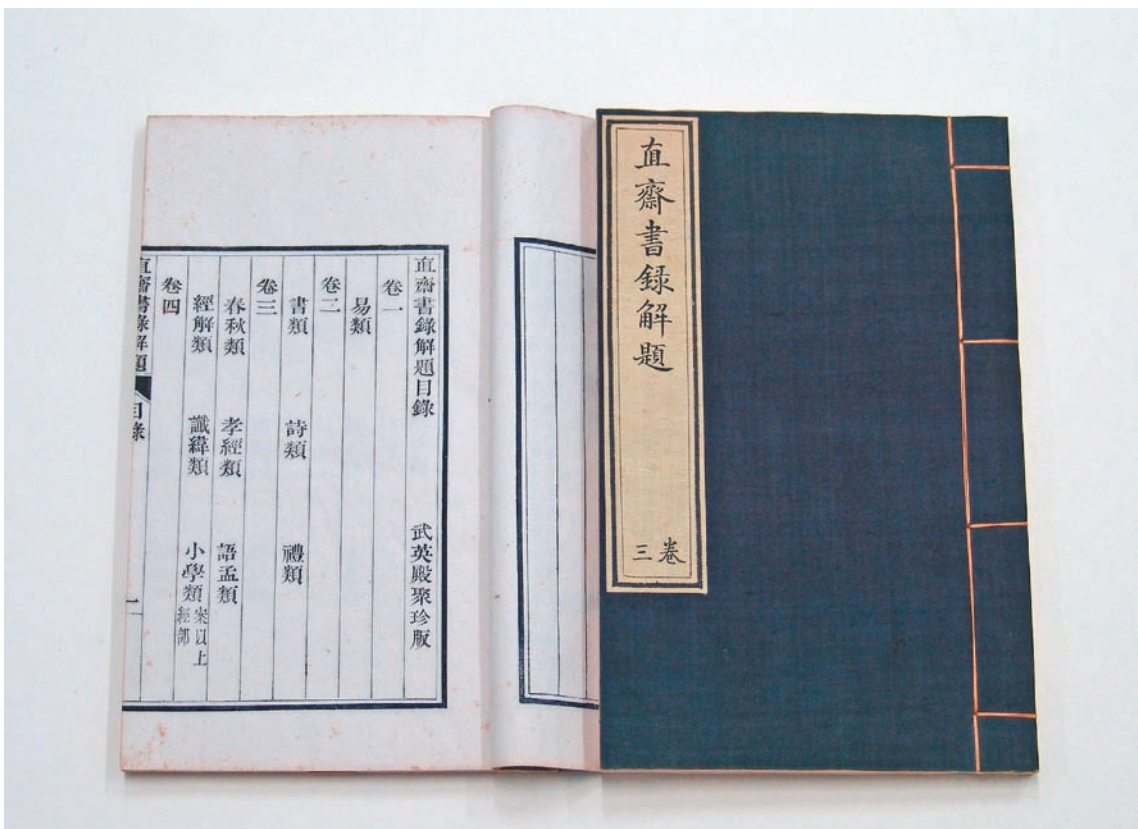 直齋書錄解題
卷三
直齋書錄解題目錄
武英殿聚珍版
卷一
易類
卷二
書類 詩類 禮類
卷三
春秋類 孝經類 語孟類
經解類 讖緯類 小學類 案以上
經部
卷四
直齋書錄解題 目錄 一